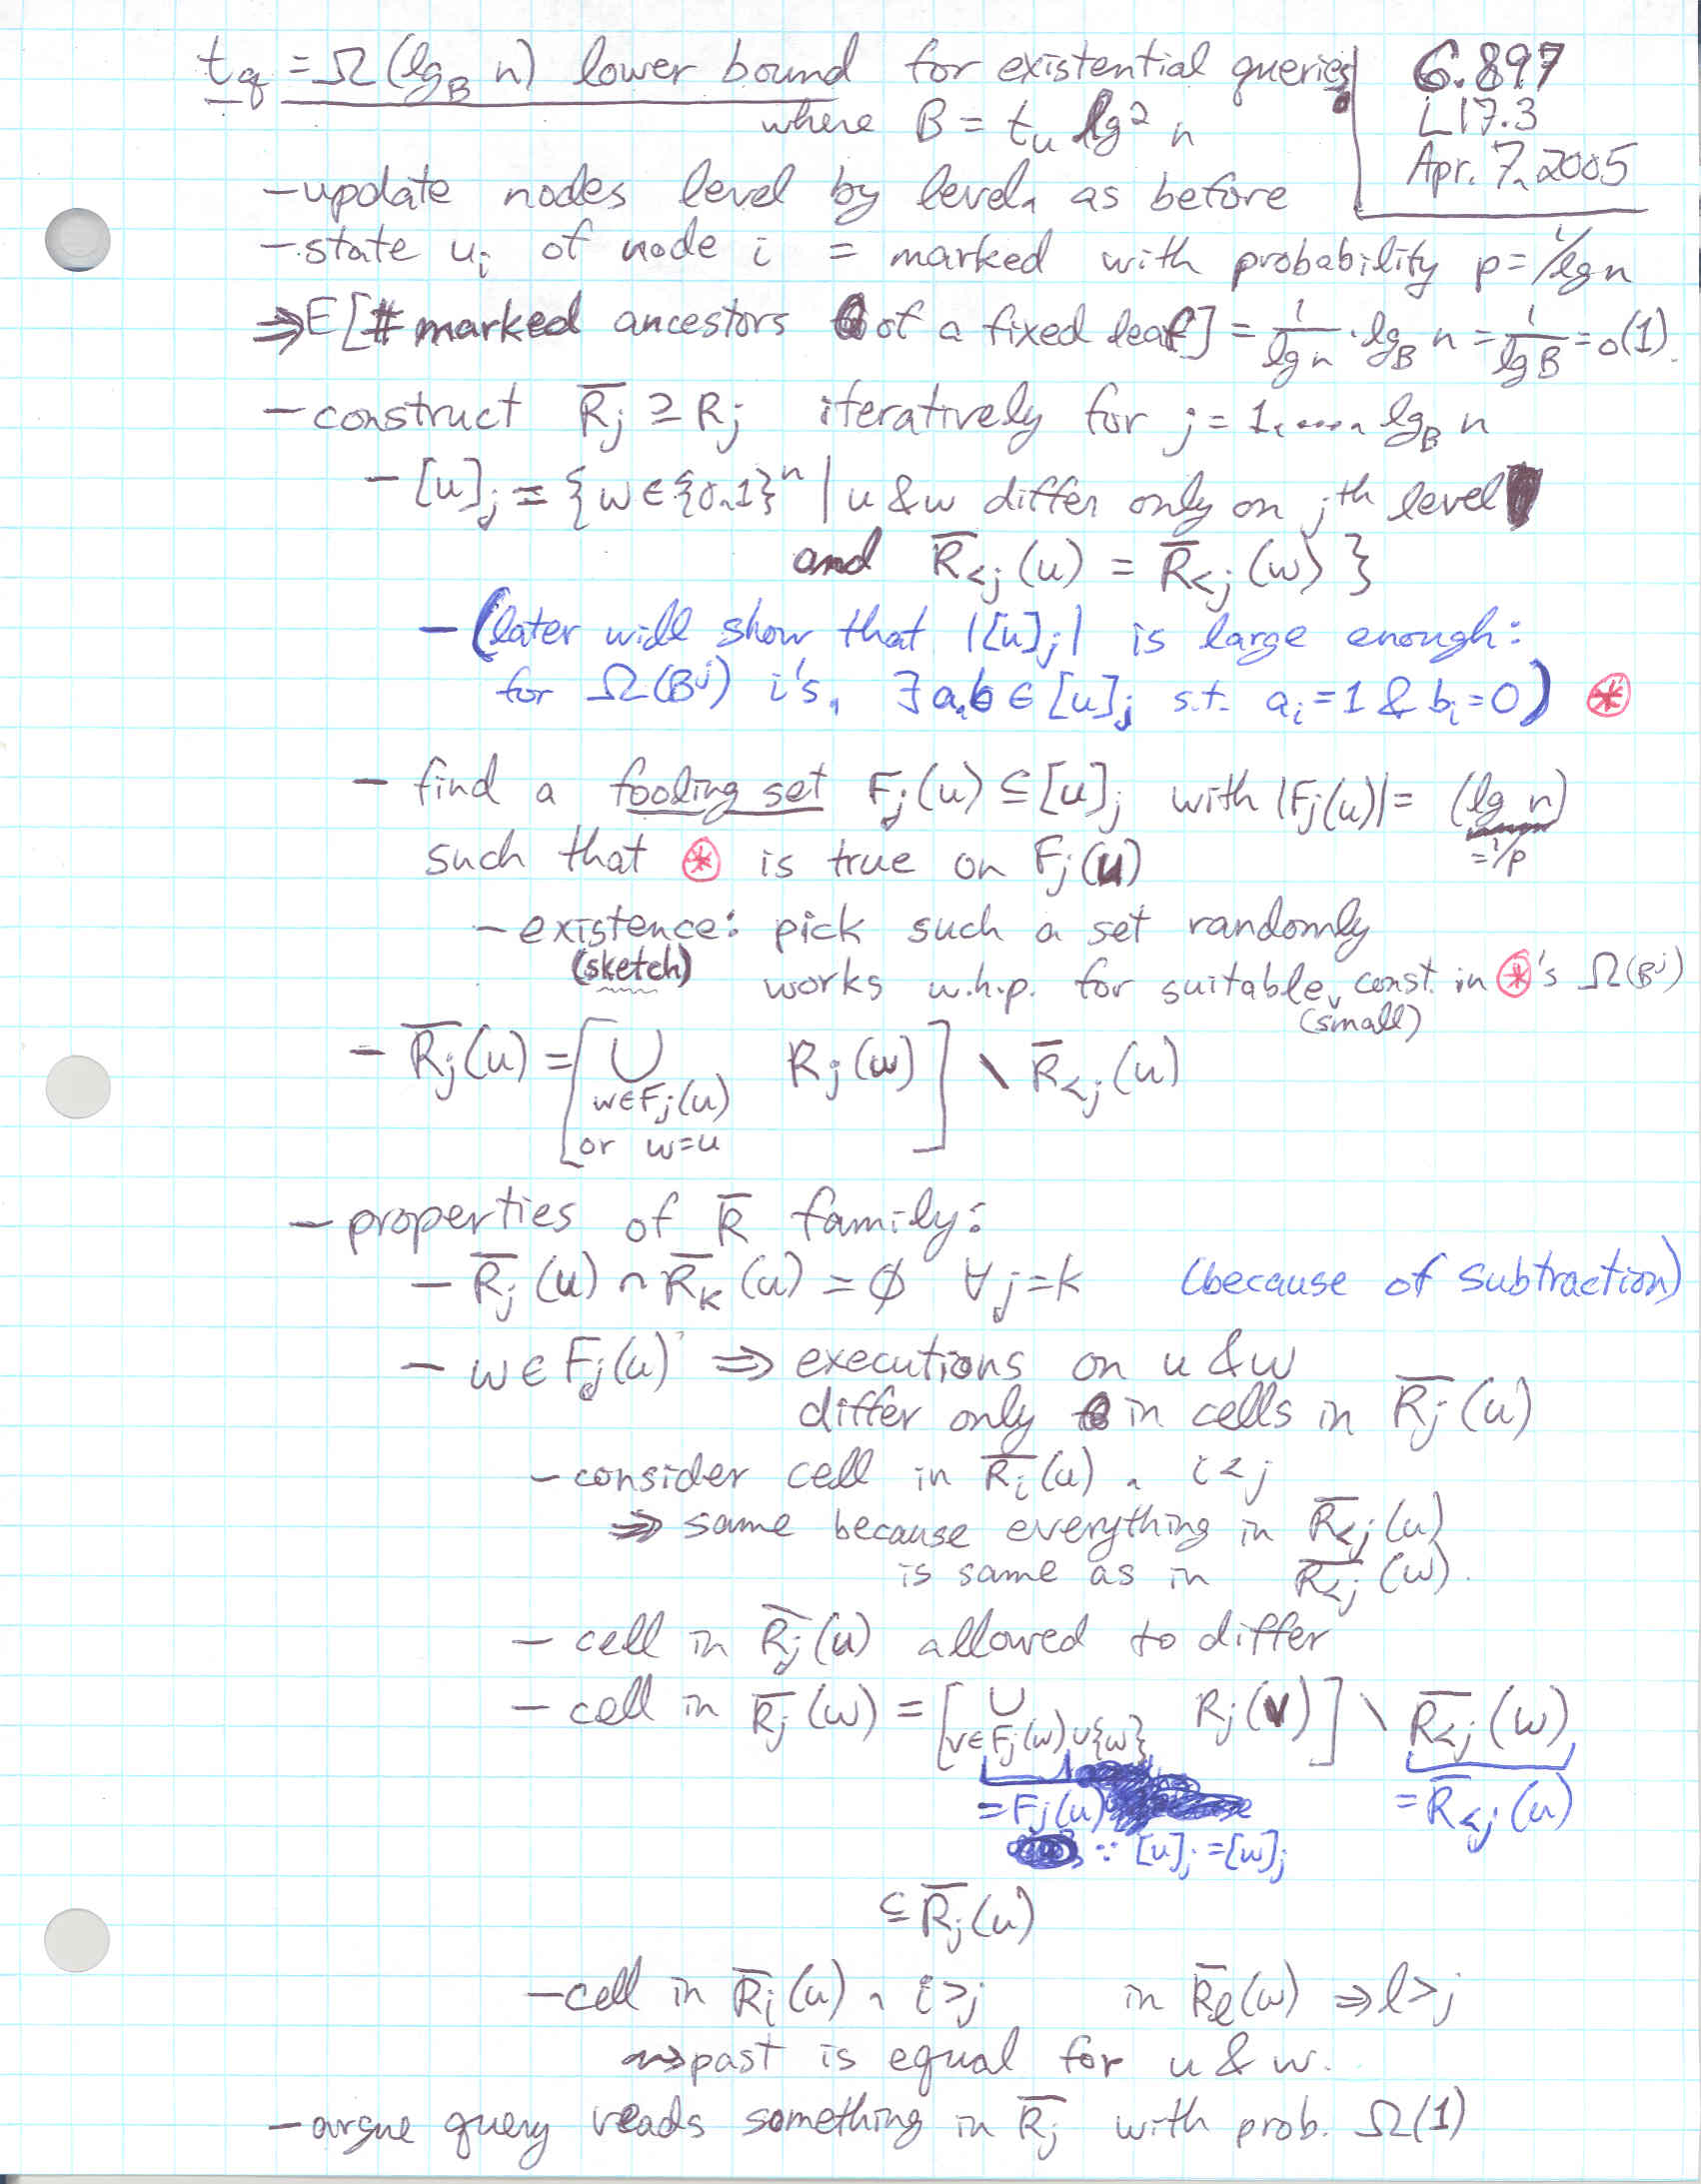 t_q = Ω(lg_B n) lower bound for existential queries
6.897
where B = t_u lg² n
L17.3
Apr. 7, 2005
– update nodes level by level, as before
– state u_i of node i = marked with probability p = 1/lg n
⇒ E[# marked ancestors of a fixed leaf] = 1/lg n · lg_B n = 1/lg B = o(1).
– construct R̅_j ⊇ R_j iteratively for j = 1, ..., lg_B n
– [u]_j = {w ∈ {0,1}ⁿ | u & w differ only on jth level
and R̅_<j (u) = R̅_<j (w) }
– (later will show that |[u]_j| is large enough:
for Ω(B^j) i's, ∃ a,b ∈ [u]_j s.t. a_i = 1 & b_i = 0) ⊛
– find a fooling set F_j(u) ⊆ [u]_j with |F_j(u)| = (lg n)
= 1/p
such that ⊛ is true on F_j(u)
– existence: pick such a set randomly
(sketch) works w.h.p. for suitable, const. in ⊛'s Ω(B^j)
(small)
– R̅_j(u) = [ ∪ R_j(w) ] \ R̅_<j (u)
w∈F_j(u)
or w=u
– properties of R̅ family:
– R̅_j(u) ∩ R̅_k(u) = ∅ ∀ j=k (because of subtraction)
– w ∈ F_j(u) ⇒ executions on u & w
differ only in cells in R̅_j(u)
– consider cell in R̅_i(u), i<j
⇒ same because everything in R̅_<j(u)
is same as in R̅_<j(w).
– cell in R̅_j(u) allowed to differ
– cell in R̅_j(w) = [ ∪ R_j(v) ] \ R̅_<j(w)
v∈F_j(w)∪{w}
= F_j(u) = R̅_<j(u)
∵ [u]_j = [w]_j
⊆ R̅_j(u)
– cell in R̅_i(u), i>j in R̅_ℓ(w) ⇒ ℓ>j
⇝ past is equal for u & w.
– argue query reads something in R̅_j with prob. Ω(1)